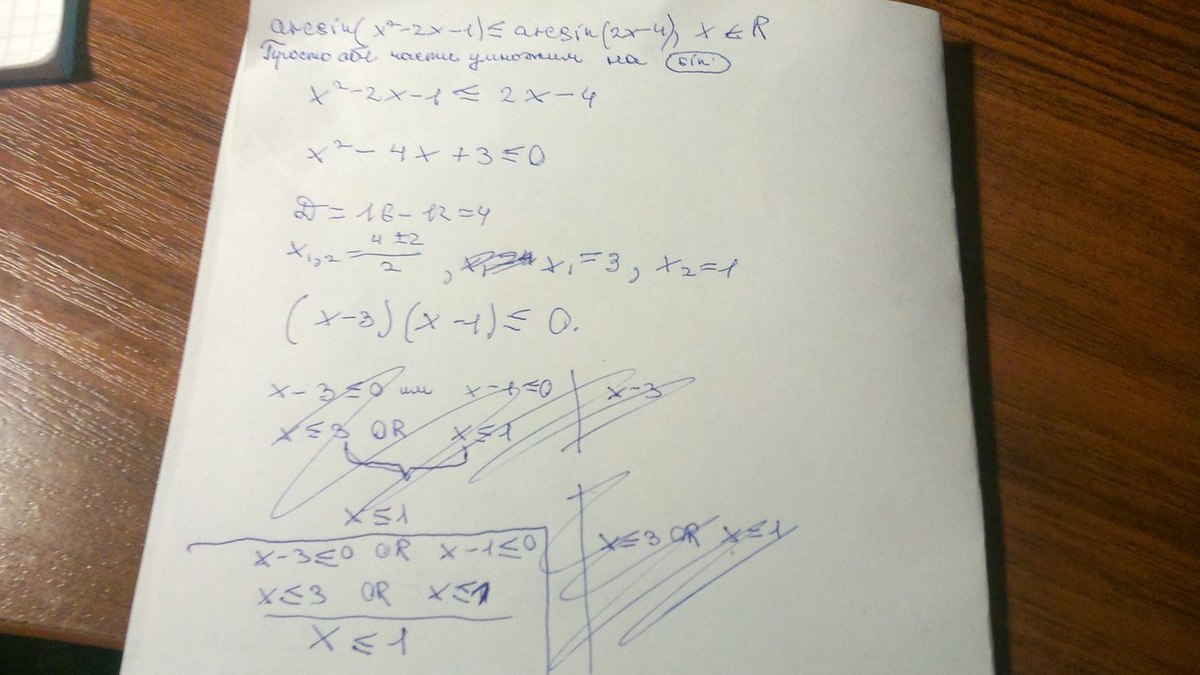 arcsin(x²-2x-1) ≤ arcsin(2x-4), x ∈ R
Просто обе части умножим на sin.
x²-2x-1 ≤ 2x-4
x²-4x+3≤0
D=16-12=4
x₁,₂=(4±2)/2, x₁=3, x₂=1
(x-3)(x-1)≤0.
x-3≤0 или x-1≤0 x-3
x≤3 OR x≤1
x≤1
x-3≤0 OR x-1≤0 x≤3 OR x≤1
x≤3 OR x≤1
x≤1